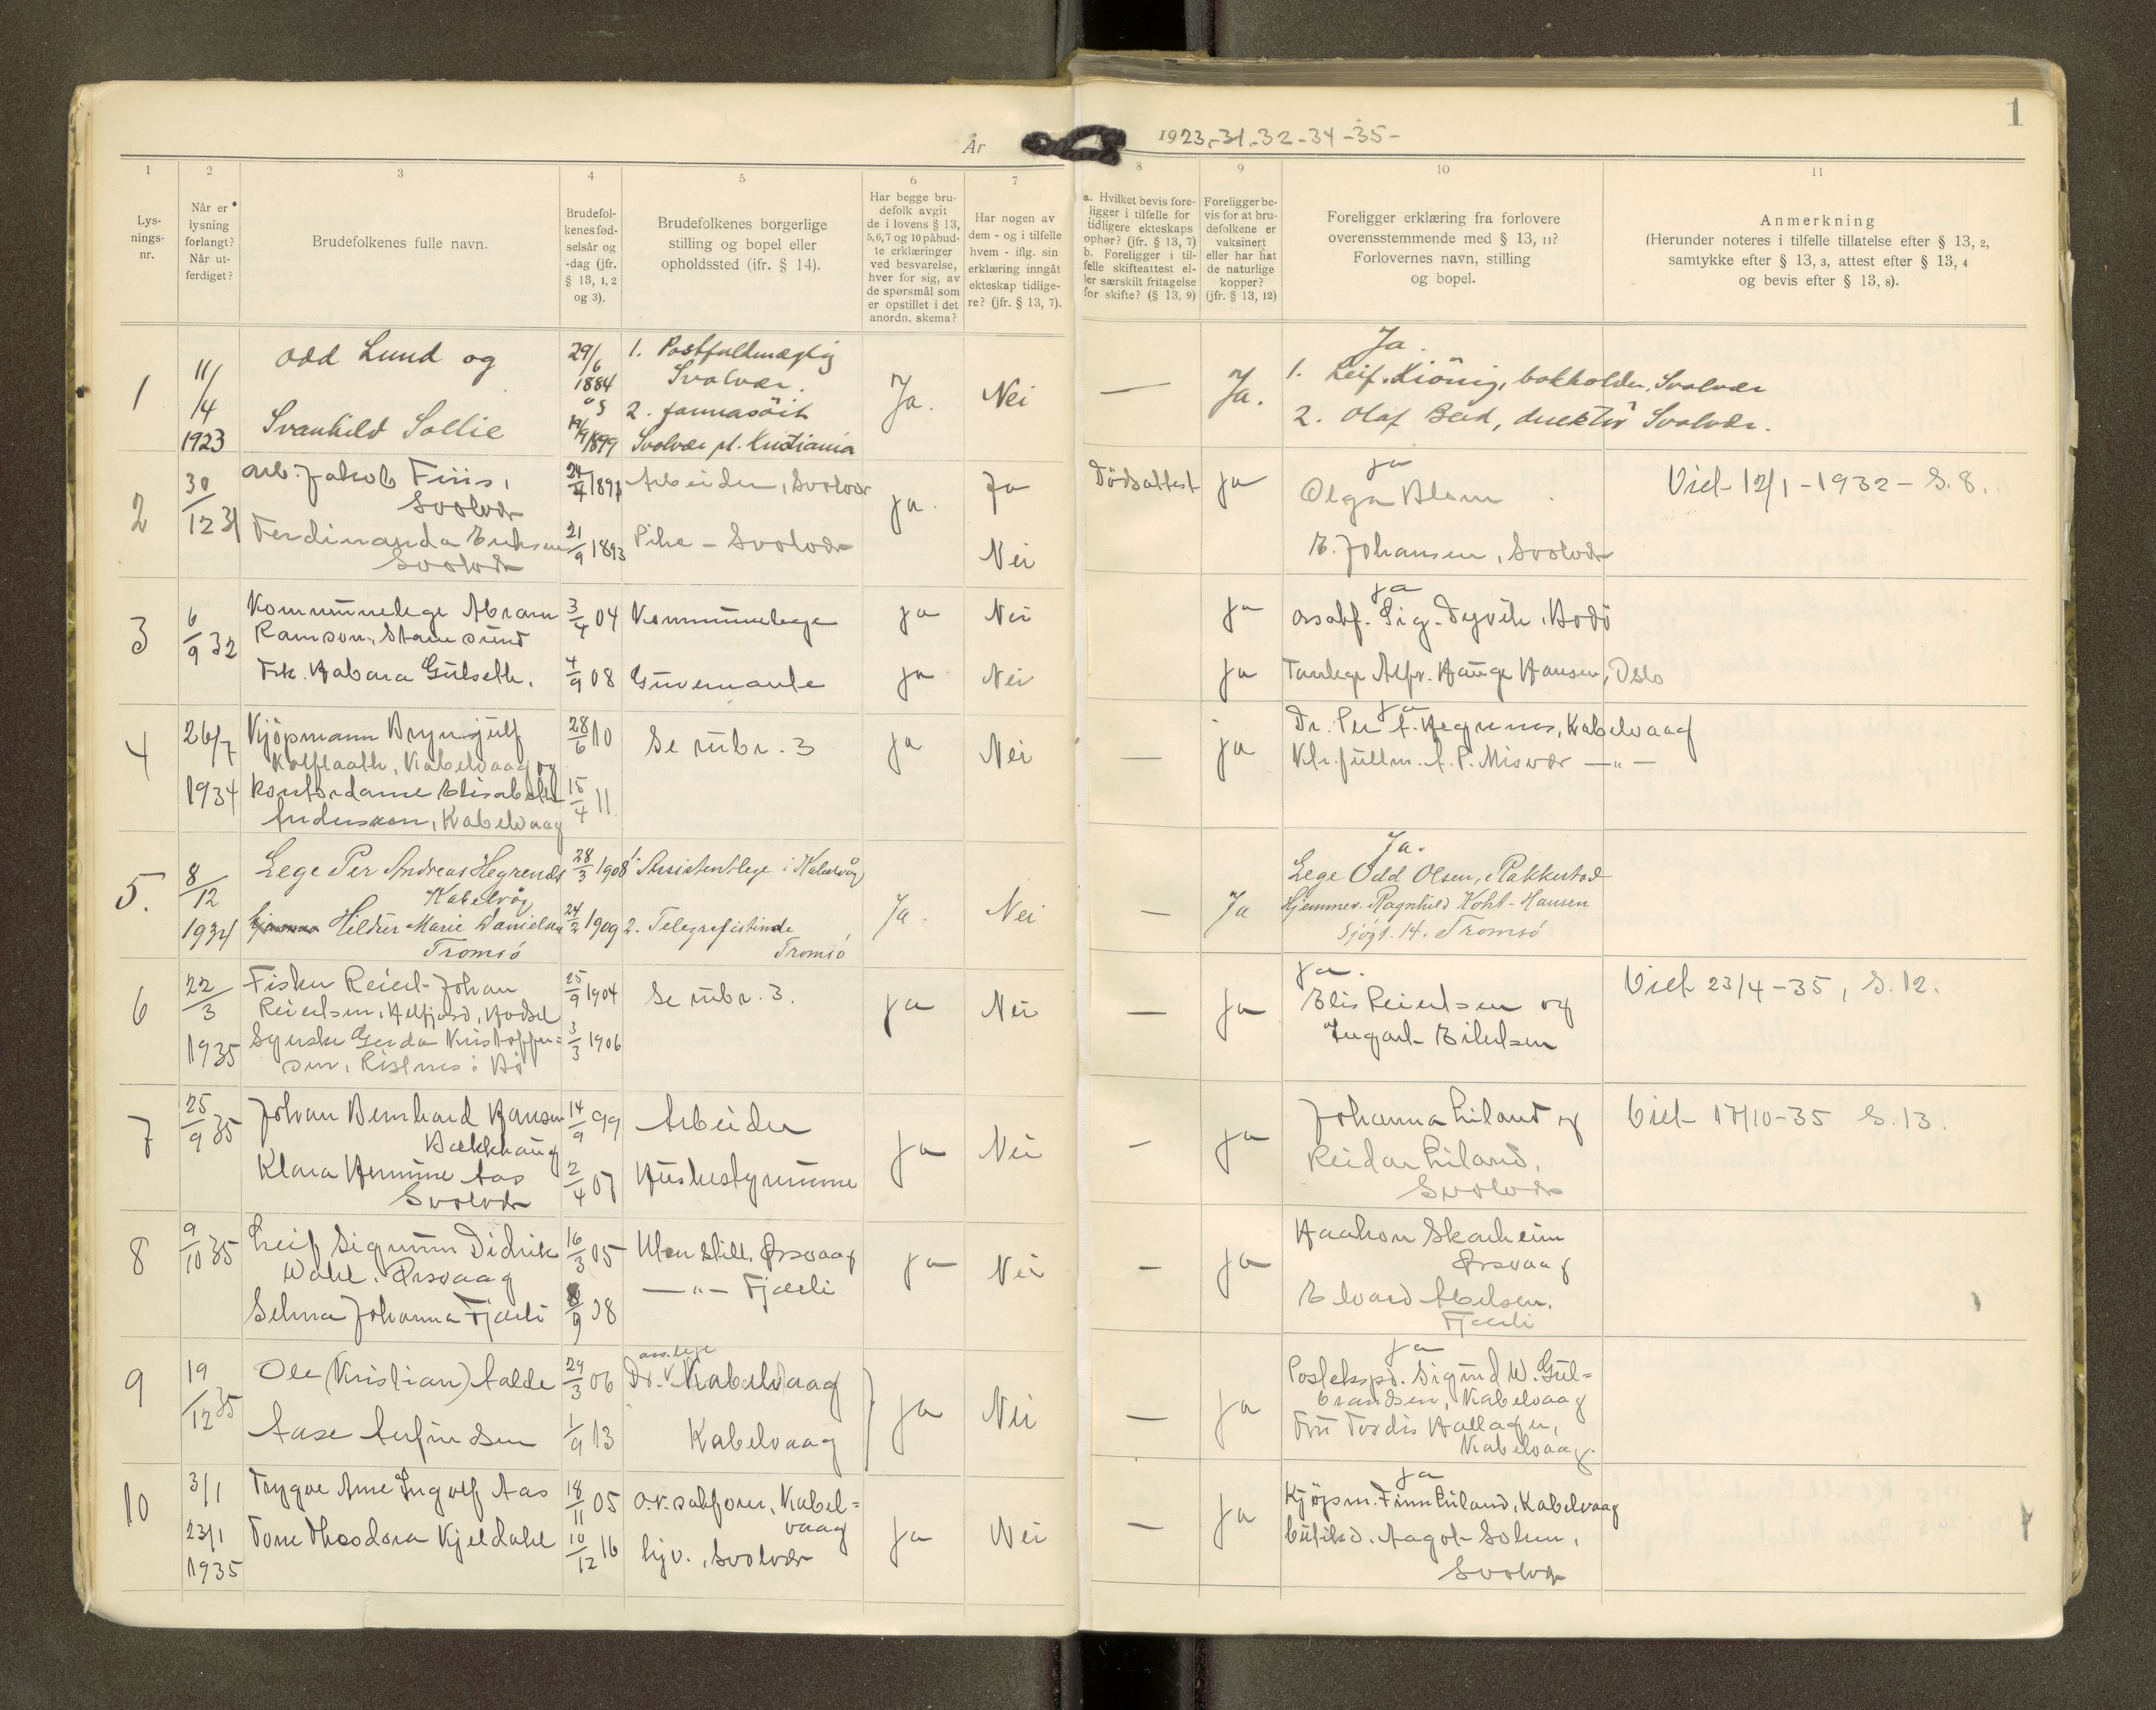 1
År 1923-31-32-34-35-
1 2 3 4 5 6 7 8 9 10 11
Lys-
nings-
nr.
Når er
lysning
forlangt?
Når ut-
ferdiget?
Brudefolkenes fulle navn.
Brudefol-
kenes fød-
selsår og
-dag (jfr.
§ 13, 1, 2
og 3).
Brudefolkenes borgerlige
stilling og bopel eller
opholdssted (jfr. § 14).
Har begge bru-
defolk avgit
de i lovens § 13,
5,6,7 og 10 påbud-
te erklæringer
ved besvarelse,
hver for sig, av
de spørsmål som
er opstillet i det
anordn. skema?
Har nogen av
dem - og i tilfelle
hvem - iflg. sin
erklæring inngåt
ekteskap tidlige-
re? (jfr. § 13, 7).
a. Hvilket bevis fore-
ligger i tilfelle for
tidligere ekteskaps
ophør? (jfr. § 13, 7)
b. Foreligger i til-
felle skifteattest el-
ler særskilt fritagelse
for skifte? (§ 13, 9)
Foreligger be-
vis for at bru-
defolkene er
vaksinert
eller har hat
de naturlige
kopper?
(jfr. § 13, 12)
Foreligger erklæring fra forlovere
overensstemmende med § 13, 11?
Forlovernes navn, stilling
og bopel.
Anmerkning
(Herunder noteres i tilfelle tillatelse efter § 13, 2,
samtykke efter § 13, 3, attest efter § 13, 4
og bevis efter § 13, 8).
1
11/
/4
1923
Odd Lund og
Svanhild Sollie
29/6
1884
19/9 1899
1. Postfuldmægtig
Svolvær.
2.
Svolvær pt. Kristiania
Ja.
Nei
—
Ja.
Ja.
1. Leif Kiönig, bokholder, Svolvær
2. Olaf Berd, direktør Svolvær.
2
30/12 31
Arb. Jakob Friis,
Svolvær
Ferdinanda Eriksen
Svolvær
21/9 1893
Arbeider, Svolvær
Pike - Svolvær
ja.
Ja
Nei
Dödsattest
ja
ja
Olga Blom
E. Johansen, Svolvær
Viet 12/1 - 1932 - S. 8.
3
6/9 32
Kommunelege Abram
Ramson, Stamsund
Frk. Habara Gulseth.
3/4 04
4/9 08
Kommunelege
Guvernante
ja
ja
Nei
Nei
ja
ja
ja
Sig. Dyvik, Bodö
Tanlege Alfr. Hauge Hansen, Oslo
4
26/7
1934
Kjöpmann Brynjulf
Kolflaath, Kabelvaag og
kontordame Elisabeth
Anderssen, Kabelvaag
28/6 10
15/4 11
Se rubr. 3
ja
Nei
—
ja
ja
Dr. Per A. Hegrenes, Kabelvaag
Ktr. fullm. A. P. Misvær —"—
5.
8/12
1934
Lege Per Andreas Hegrenes
Kabelvåg
Hildur Marie Danielsen
Tromsö
28/3 1908
24/2 1909
1. Assistentlege i Kabelvåg
2. Telegrafistinde
Tromsö
Ja.
Nei
—
Ja
Ja.
Lege Odd Olsen, Rakkestad
Hjemmev. Ragnhild Koht-Hansen
Sjögt. 14. Tromsö
6
22/3
1935
Fisker Reiert Johan
Reiertsen, Melfjord, Hadsel
Syerske Gerda Kristoffer=
sen, Ristnes i Bö
25/9 1904
3/3 1906
Se rubr. 3.
ja
Nei
—
ja
ja.
Elis Reiertsen og
Ingart Eilertsen
Viet 23/4 - 35, S. 12.
7
25/9 35
Johan Bernhard Hansen
Bakkhaug
Klara Hermine Aas
Svolvær
14/9 99
2/4 07
Arbeider
Husbestyrerinne
ja
Nei
-
ja
Johanna Liland og
Reidar Liland,
Svolvær
Viet 17/10-35 S. 13.
8
9/10 35
Leif Sigmunn Didrik
Wahl. Ørsvaag
Selma Johanna Fjærli
16/3 05
8/9 08
Uten still. Ørsvaag
—"— Fjærli
ja
Nei
-
ja
Haakon Skarheim
Ørsvaag
Edvard Abelsen.
Fjærli
9
19/12 35
Ole (Kristian) Aalde
Aase Arfinsen
29/3 06
1/9 13
ass. lege
Dr. Kabelvaag
Kabelvaag
ja
Nei
—
ja
ja
Postekspd. Sigurd W. Gul=
brandsen, Kabelvaag
Fru Tordis Hallager,
Kabelvaag.
10
3/1
23/1
1935
Trygve Arne Ingolf Aas
Tove Theodora Kjeldahl
18/11 05
10/12 16
o.r. sakförer, Kabel=
vaag
hjv., Svolvær
ja
Nei
—
ja
ja
Kjöpm. Finn Liland, Kabelvaag
butikd. Aagot Solem,
Svolvær